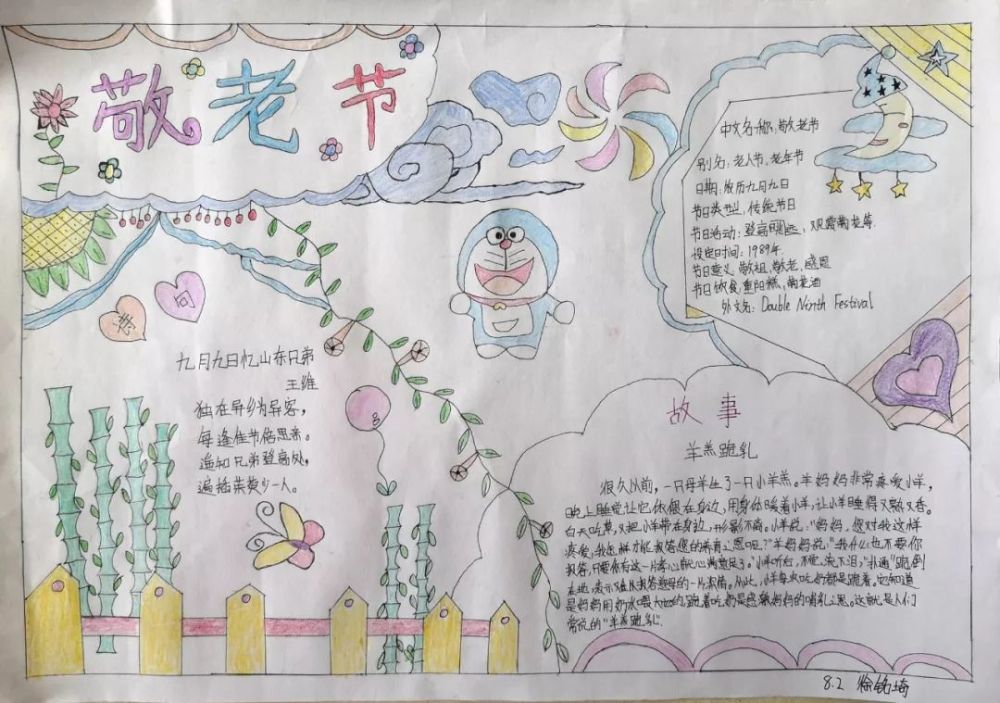 敬老节
诗 句
九月九日忆山东兄弟
王维
独在异乡为异客，
每逢佳节倍思亲。
遥知兄弟登高处，
遍插茱萸少一人。
中文名称：敬老节
别名：老人节、老年节
日期：农历九月九日
节日类型：传统节日
节日活动：登高
设定时间：1989年
节日意义：敬祖、敬老、感恩
节日饮食：重阳糕、菊花酒
外文名：Double Ninth Festival
故事
羊羔跪乳
很久以前，一只母羊生了一只小羊羔。羊妈妈非常疼爱小羊，
晚上睡觉让它依偎在身边，用身体暖着小羊，让小羊睡得又熟又香。
白天吃草，又把小羊带在身边，形影不离。小羊说："妈妈，您对我这样
疼爱，我怎样才能报答您的养育之恩呢？"羊妈妈说："我什么也不要你
报答，只要你有这一片孝心就心满意足了。"小羊听后，不觉流下泪，"扑通"跪倒
在地，表示难以报答慈母的一片深情。从此，小羊每次吃奶都是跪着。它知道
是妈妈用奶水喂大它的，跪着吃奶是感激妈妈的哺乳之恩。这就是人们
常说的"羊羔跪乳
8.2 徐铭琦